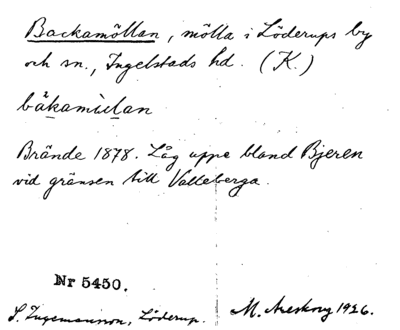 Backamöllan, mölla i Löderups by
och sn., Ingelstads hd. (K.)
båkamıl̄an
Brände 1878. Låg uppe bland Bjeren
vid gränsen till Valleberga.
Nr 5450.
S. Ingemansson, Löderup. M. Areskog 1926.